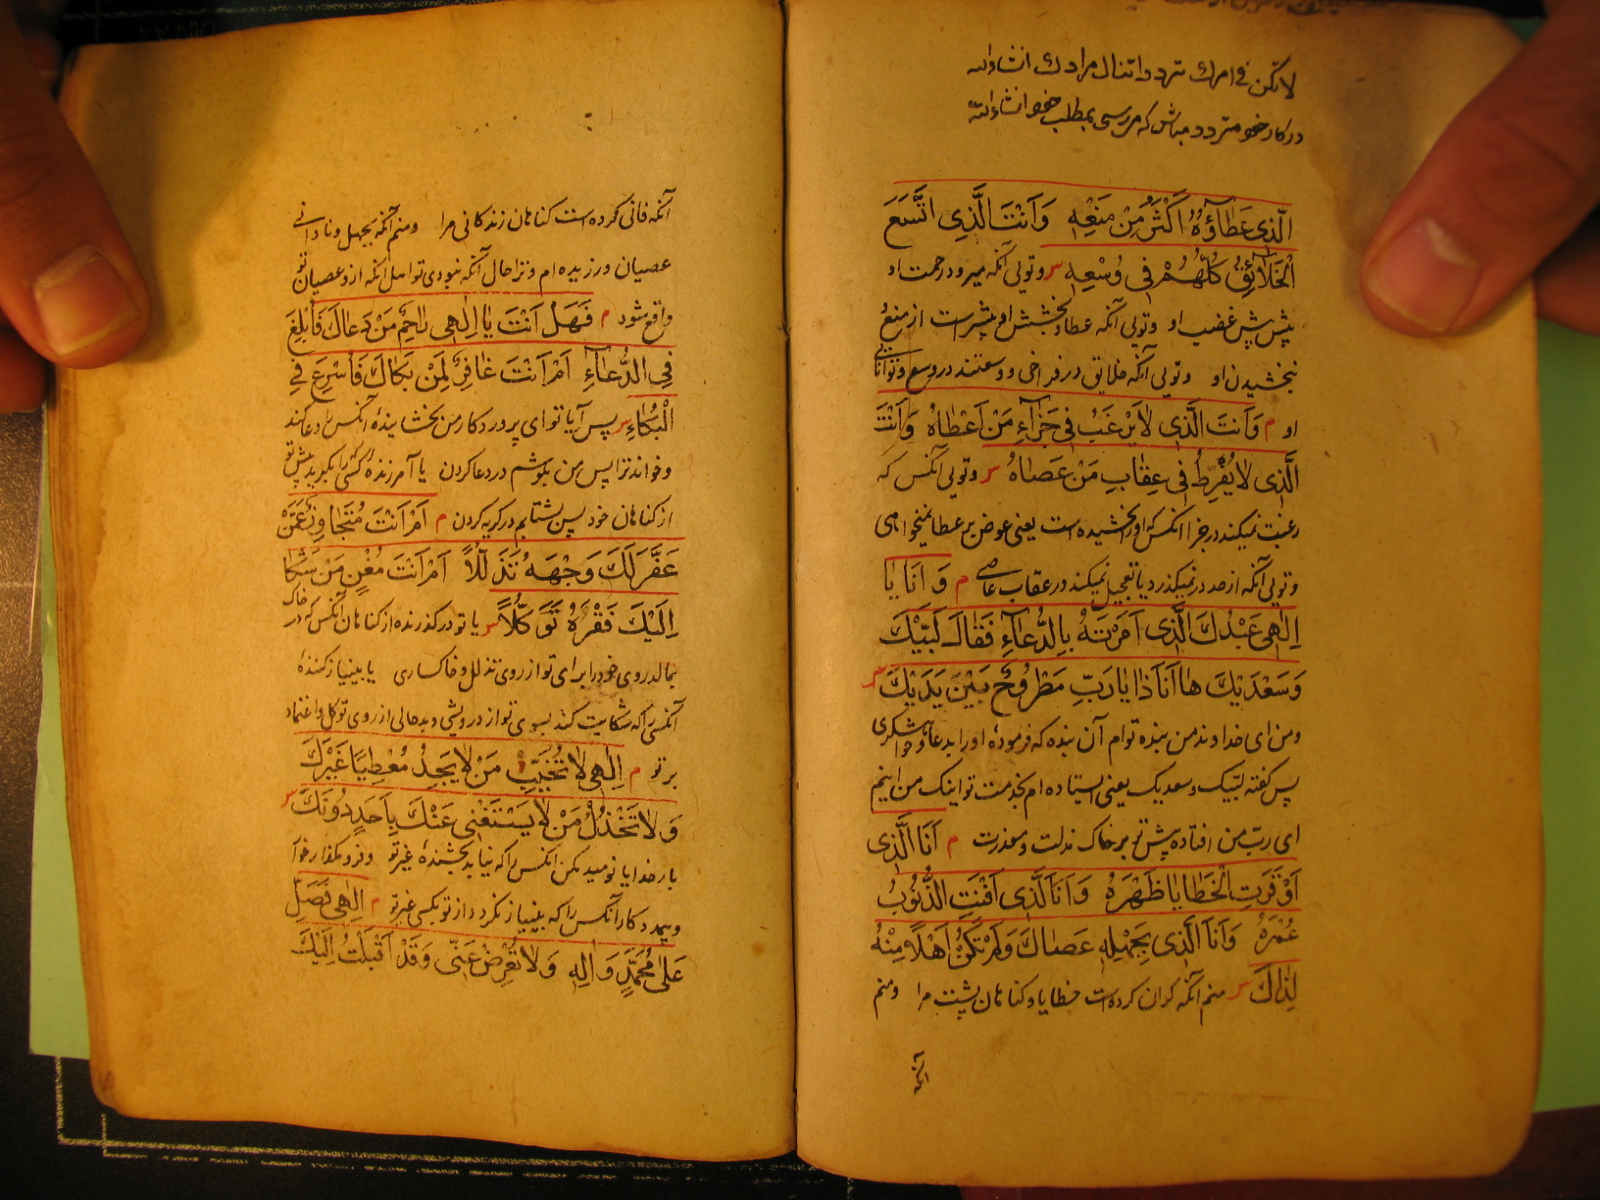 لا تكن في امرك متردد اتنال مرادك انشاءالله
در كار خود متردد مباش كه مى رسى بمطلب خود انشاءالله
الَّذِي عَطَاؤُهُ اَكْثَرُ مِنْ مَنْعِهِ وَاَنْتَ الَّذِي اتَّسَعَ
الْخَلَائِقُ كُلُّهُمْ فِي وُسْعِهِ س وتوئی آنکه میرود رحمت او
پیش پیش غضب او وتوئی آنکه عطا وبخشش او بیشتر است از منع و
نبخشیدن او وتوئی آنکه خلائق در فراخی و وسعتند در وسع وتوانائی
او م وَاَنْتَ الَّذِي لَا يَرْغَبُ فِي جَزَاءِ مَنْ اَعْطَاهُ وَاَنْتَ
الَّذِي لَا يُفْرِطُ فِي عِقَابِ مَنْ عَصَاهُ س وتوئی آنکس که
رغبت نمیکند در جزا آنکس که او بخشیده است یعنی عوض بر عطا نمیخواهی
وتوئی آنکه از حد در نمیگذرد یا تعجیل نمیکند در عقاب عاصی م وَ اَنَا يَا
اِلٰهِي عَبْدُكَ الَّذِي اَمَرْتَهُ بِالدُّعَاءِ فَقَالَ لَبَّيْكَ
وَسَعْدَيْكَ هَا اَنَا ذَا يَا رَبِّ مَطْرُوحٌ بَيْنَ يَدَيْكَ س
ومن ای خداوند من بنده توام آن بنده که فرموده اورا بدعا وخواهشگری
پس گفته لبیک وسعدیک یعنی ایستاده ام بخدمت تو اینک من اینم
ای رب من افتاده پیش تو بر خاک مذلت ومعذرت م اَنَا الَّذِي
اَوْقَرَتِ الْخَطَايَا ظَهْرَهُ وَاَنَا الَّذِي اَفْنَتِ الذُّنُوبُ
عُمْرَهُ وَاَنَا الَّذِي بِجَهْلِهِ عَصَاكَ وَلَمْ تَكُنْ اَهْلًا مِنْهُ
لِذَاكَ س منم آنکه گران کرده است خطایا وگناهان پشت مرا ومنم
آنکه
آنکه فانی کرده است گناهان زندگانی مرا ومنم آنکه بجهل ونادانی
عصیان ورزیده ام وترا حال آنکه نبودی تو اهل آنکه از و عصیان تو
واقع شود م فَهَلْ اَنْتَ يَا اِلٰهِي رَاحِمٌ مَنْ دَعَاكَ فَاُبْلِغَ
فِي الدُّعَاءِ اَمْ اَنْتَ غَافِرٌ لِمَنْ بَكَاكَ فَاُسْرِعَ فِي
الْبُكَاءِ س پس آیا تو ای پروردگار من بخشاینده آنکس را دعا کند
وخواند ترا پس من بکوشم در دعا کردن یا آمرزنده کسی را که بگرید پیش تو
از گناهان خود پس بشتابم در گریه کردن م اَمْ اَنْتَ مُتَجَاوِزٌ عَمَّنْ
عَفَّرَ لَكَ وَجْهَهُ تَذَلُّلًا اَمْ اَنْتَ مُغْنٍ مَنْ شَكَا
اِلَيْكَ فَقْرَهُ تَوَكُّلًا س یا تو درگذرنده از گناهان آنکس که در خاک
بمالد روی خود را برای تو از روی تذلل وخاکساری یا بینیاز کننده
آنکسی را که شکایت کند بسوی تو از درویشی وبدحالی از روی توکل واعتماد
بر تو م اِلٰهِي لَا تُخَيِّبْ مَنْ لَا يَجِدُ مُعْطِيًا غَيْرَكَ
وَلَا تَخْذُلْ مَنْ لَا يَسْتَغْنِي عَنْكَ بِاَحَدٍ دُونَكَ س
بار خدایا نومید مکن آنکس را که نیابد بخشنده غیر تو وفرومگذار خوار
وبیمددکار آنکس را که بینیاز نگردد از تو بکسی غیر تو م اِلٰهِي فَصَلِّ
عَلٰى مُحَمَّدٍ وَاٰلِهِ وَلَا تُعْرِضْ عَنِّي وَقَدْ اَقْبَلْتُ اِلَيْكَ